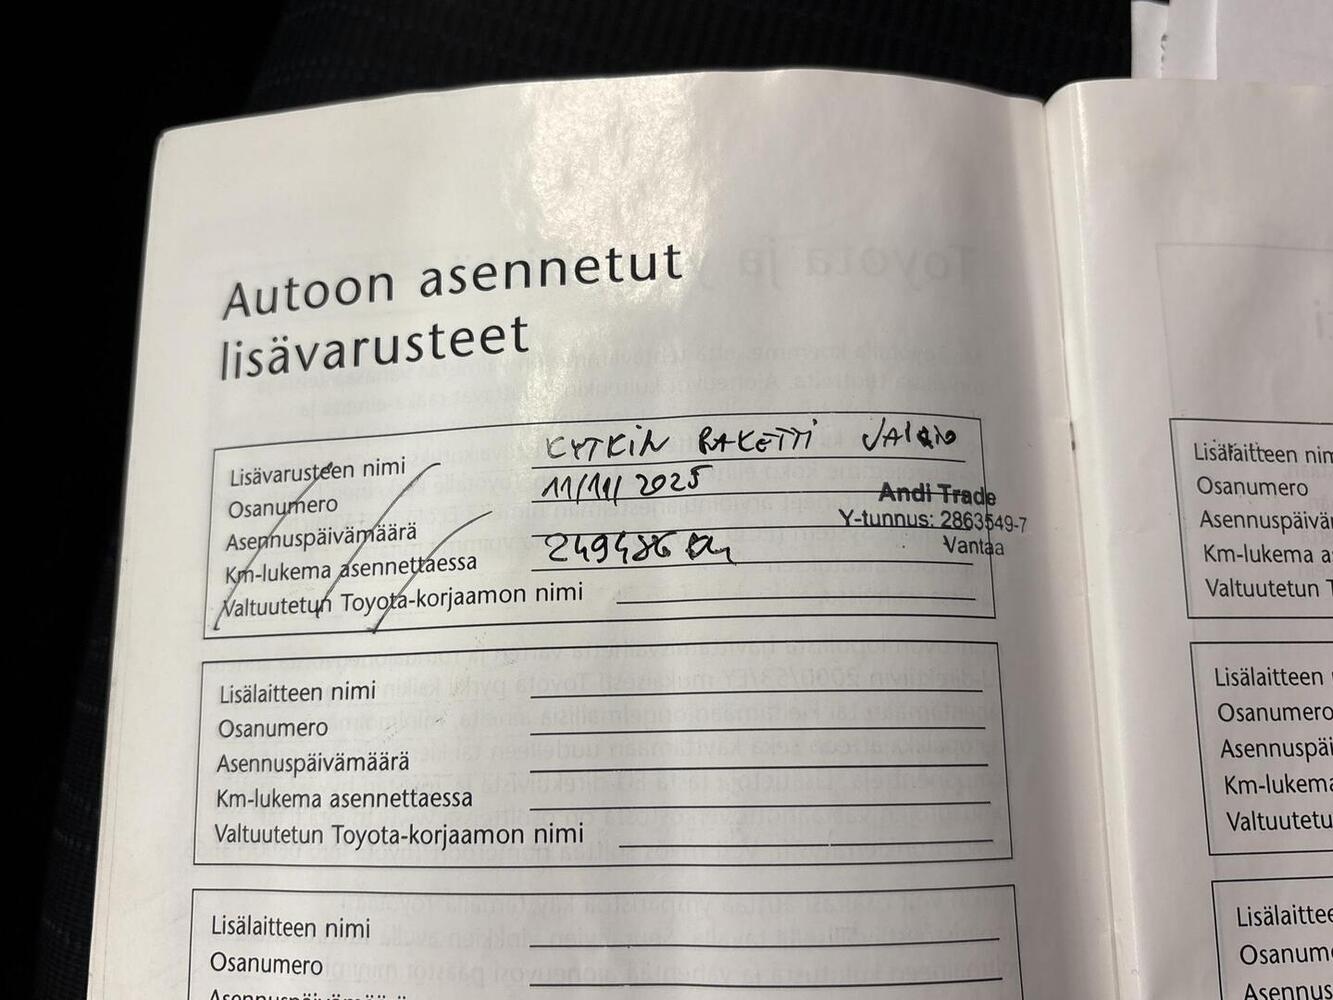 Autoon asennetut
lisävarusteet
Lisävarusteen nimi KYTKIN RAKETTI
Osanumero 11/11/2025
Andi Trade
Asennuspäivämäärä
Y-tunnus: 2863549-7
Km-lukema asennettaessa 249486 km
Vantaa
Valtuutetun Toyota-korjaamon nimi
Lisälaitteen nimi
Osanumero
Asennuspäivämäärä
Km-lukema asennettaessa
Valtuutetun Toyota-korjaamon nimi
Lisälaitteen nimi
Osanumero
Asennuspäivämäärä
Lisälaitteen nim
Osanumero
Asennuspäivä
Km-lukema a
Valtuutetun T
Lisälaitteen
Osanumero
Asennuspäi
Km-lukema
Valtuutetu
Lisälaittee
Osanum
Asennus